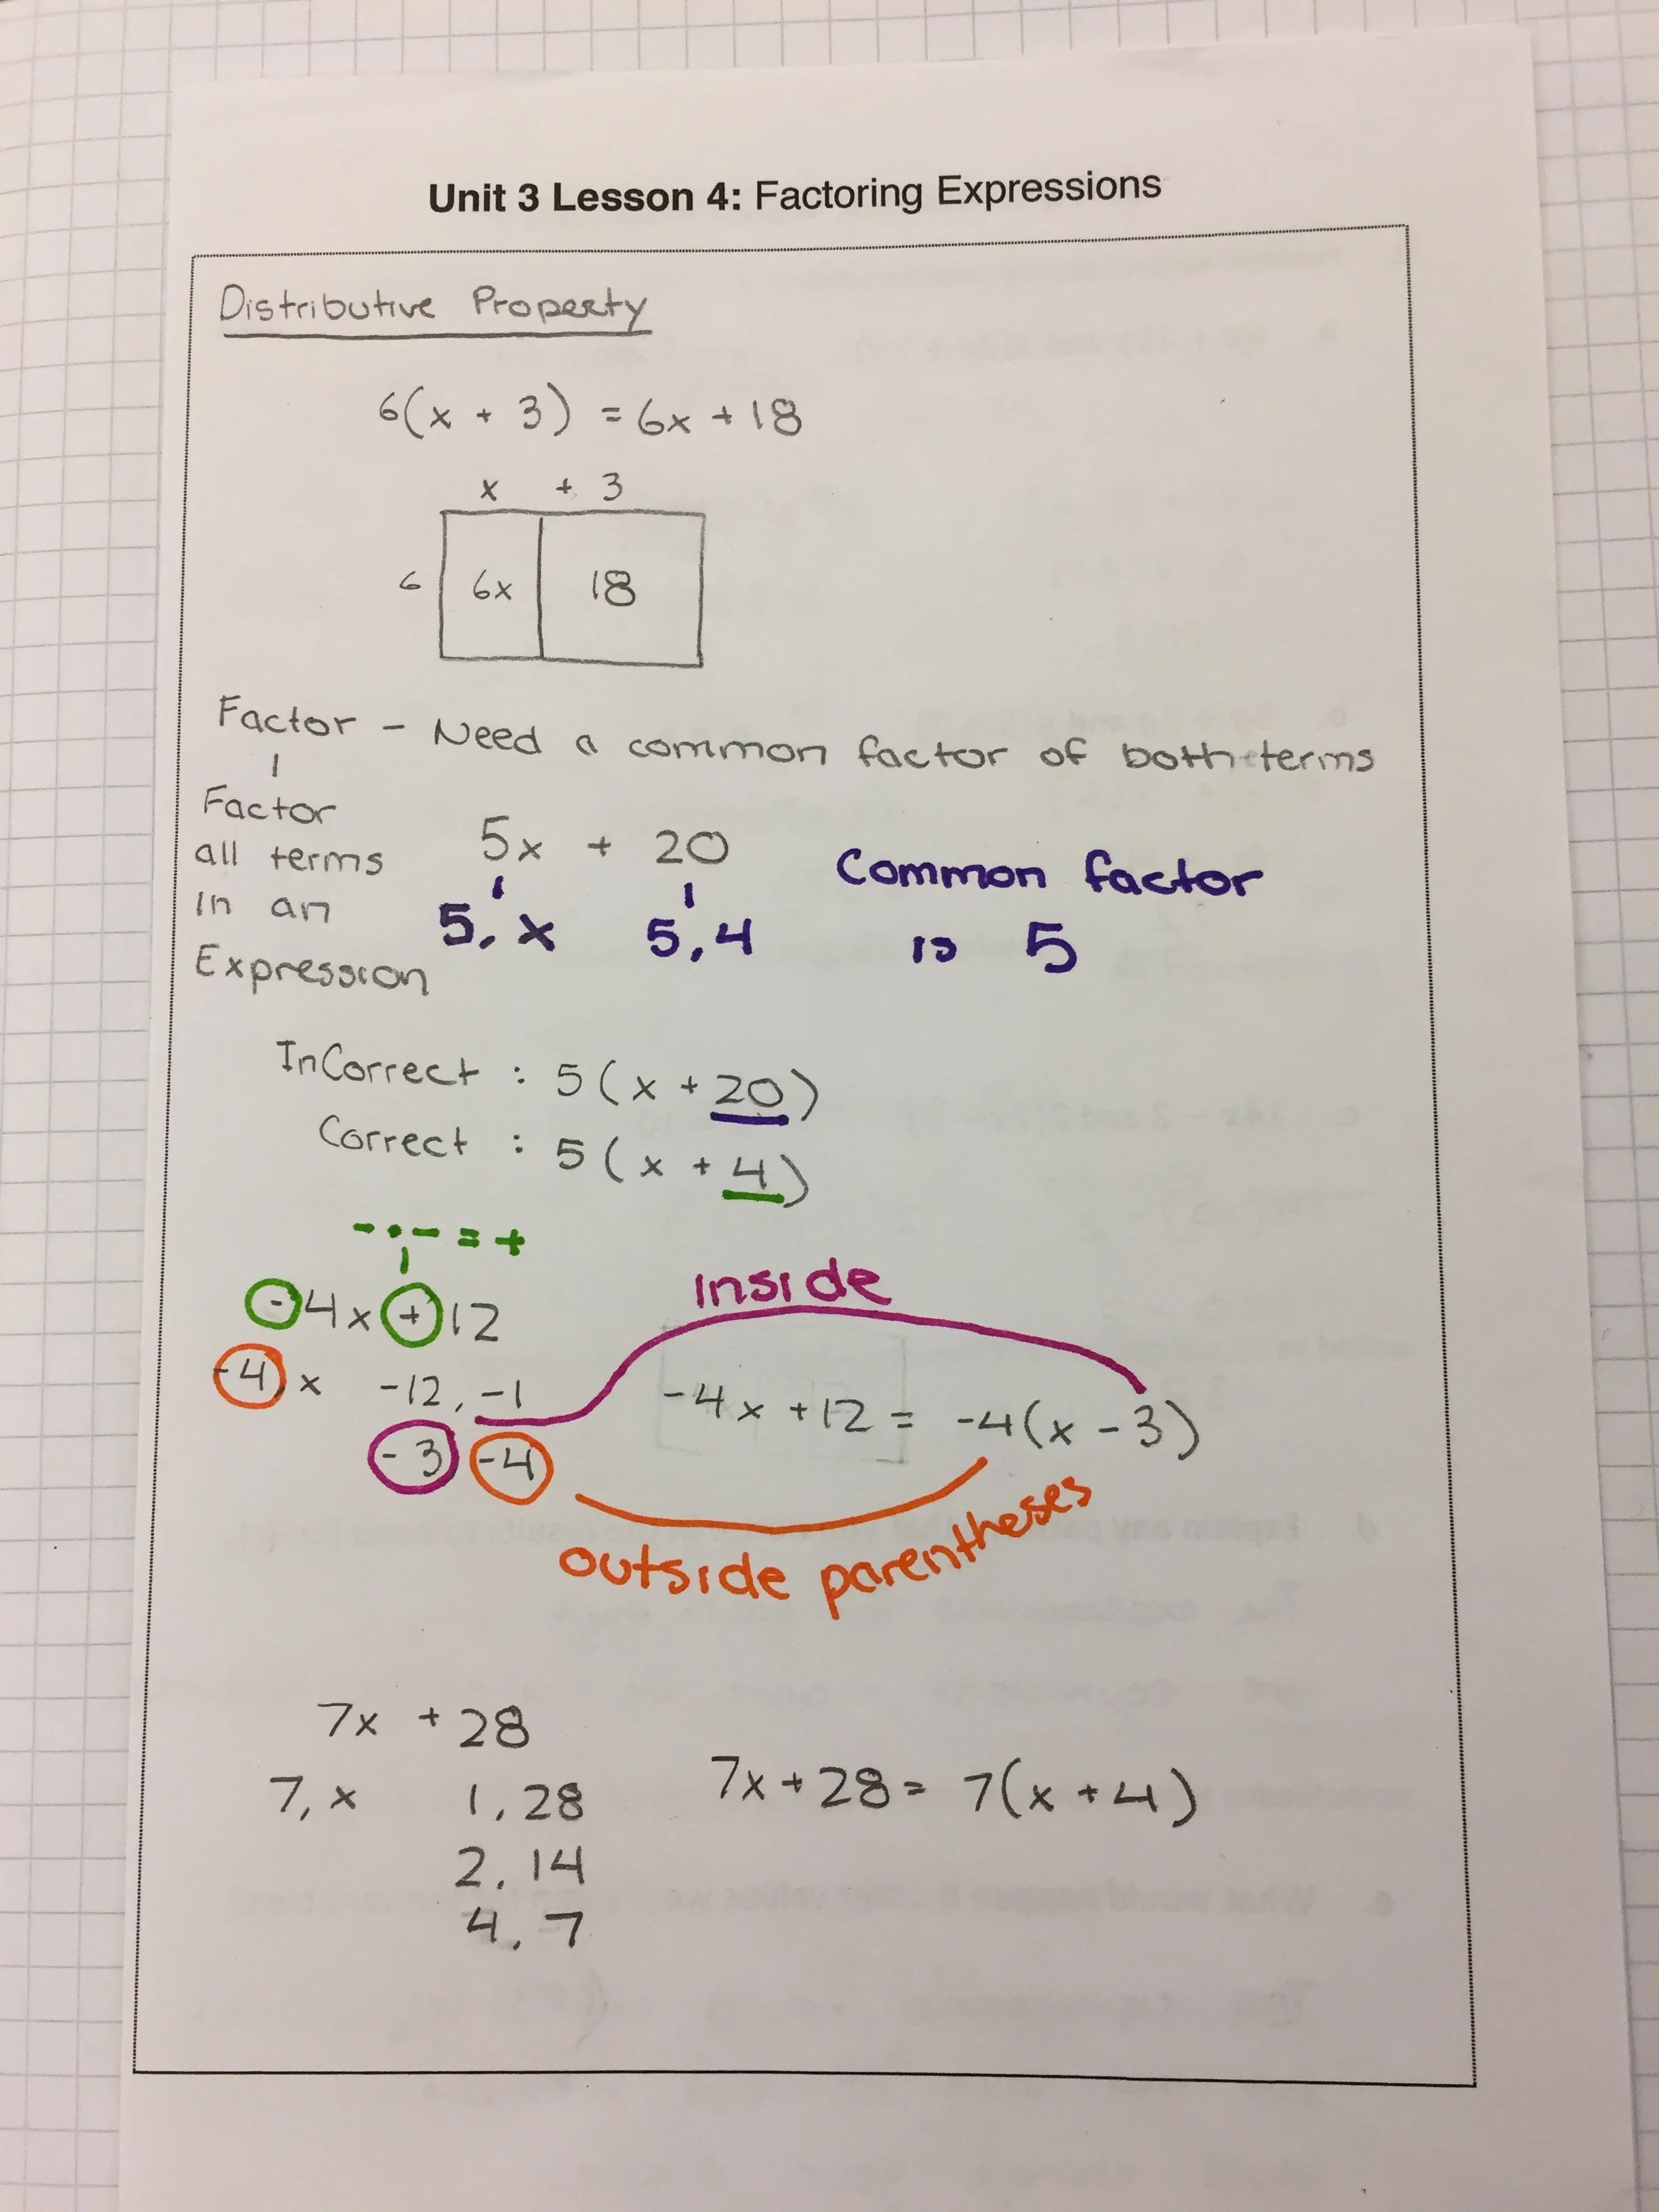 Unit 3 Lesson 4: Factoring Expressions
Distributive Property
6(x + 3) = 6x + 18
x + 3
6 6x 18
Factor - Need a common factor of both terms
Factor
all terms
in an
Expression
5x + 20
5, x 5, 4
Common factor
is 5
InCorrect : 5(x + 20)
Correct : 5(x + 4)
- · - = +
-4x + 12
-4, x -12, -1
-3, -4
Inside
-4x + 12 = -4(x - 3)
outside parentheses
7x + 28
7, x 1, 28
2, 14
4, 7
7x + 28 = 7(x + 4)